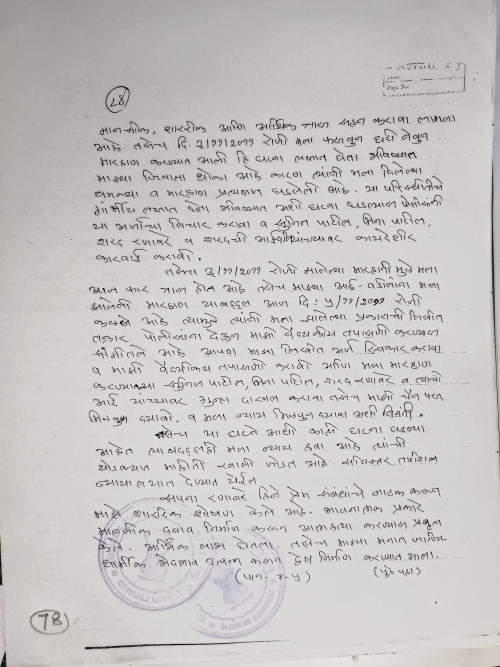 28
मानसीक, शाररीक आणि आर्थिक त्रास सहन करावा लागला
आहे तसेच दि. 3/११/२०११ रोजी मला फसवुन घरी नेवुन
मारहाण करण्यात आली हि घटना लक्षात घेता भविष्यात
माझ्या जिवाला धोका आहे कारण त्यांनी मला दिलेल्या
धमक्या व मारहाण प्रत्यक्षात घडलेली आहे. या परिस्थीतीचे
गांभीर्य लक्षात घेता भविष्यात अशी घटना घडल्यास पोलीसांनी
या अर्जाचा विचार करावा व सुनिल पाटील, मिना पाटील,
शरद रणावर व शरदची आई यांच्यावर कायदेशीर
कारवाई करावी.
तसेच 3/११/२०११ रोजी झालेल्या मारहाणी मुळे मला
आज फार त्रास होत आहे तसेच माझ्या आई-वडीलांना मला
झालेली मारहाण याबद्दल आज दि: ५/११/२०११ रोजी
कळले आहे त्यामुळे त्यांनी मला झालेल्या प्रकाराची लिखीत
तक्रार पोलीसांना देऊन माझी वैद्यकीय तपासणी करण्यास
सांगितले आहे आपण माझा लिखीत अर्ज स्विकार करावा
व माझी वैद्यकीय तपासणी करावी आणि मला मारहाण
करणाऱ्या सुनिल पाटील, मिना पाटील, शरद रणावर व त्याची
आई यांच्यावर गुन्हा दाखल करावा तसेच माझी चैन परत
मिळवुन द्यावी, व मला न्याय मिळवुन द्यावा अशी विनंती.
तसेच या घटने आधी काही घटना घडल्या
आहेत त्याबद्दलही मला न्याय हवा आहे त्यांची
थोडक्यात माहीती खाली जोडत आहे. सविस्तर तपशिल
न्यायालयात देण्यात येईल
सपना रणावर हिने प्रेम संबंधांचे नाटक करून
माझे शाररिक शोषण केले आहे. भावनात्मक प्रकारे
मानसीक दबाव निर्माण करून आत्महत्या करण्यास प्रवृत्त
केले. आर्थिक लाभ घेतला. तसेच माझ्या मनात जातीय
धार्मीक भेदभाव उत्पन्न करून द्वेष निर्माण करण्यात आला.
(पान-४-५) (पुढे पहा)
78